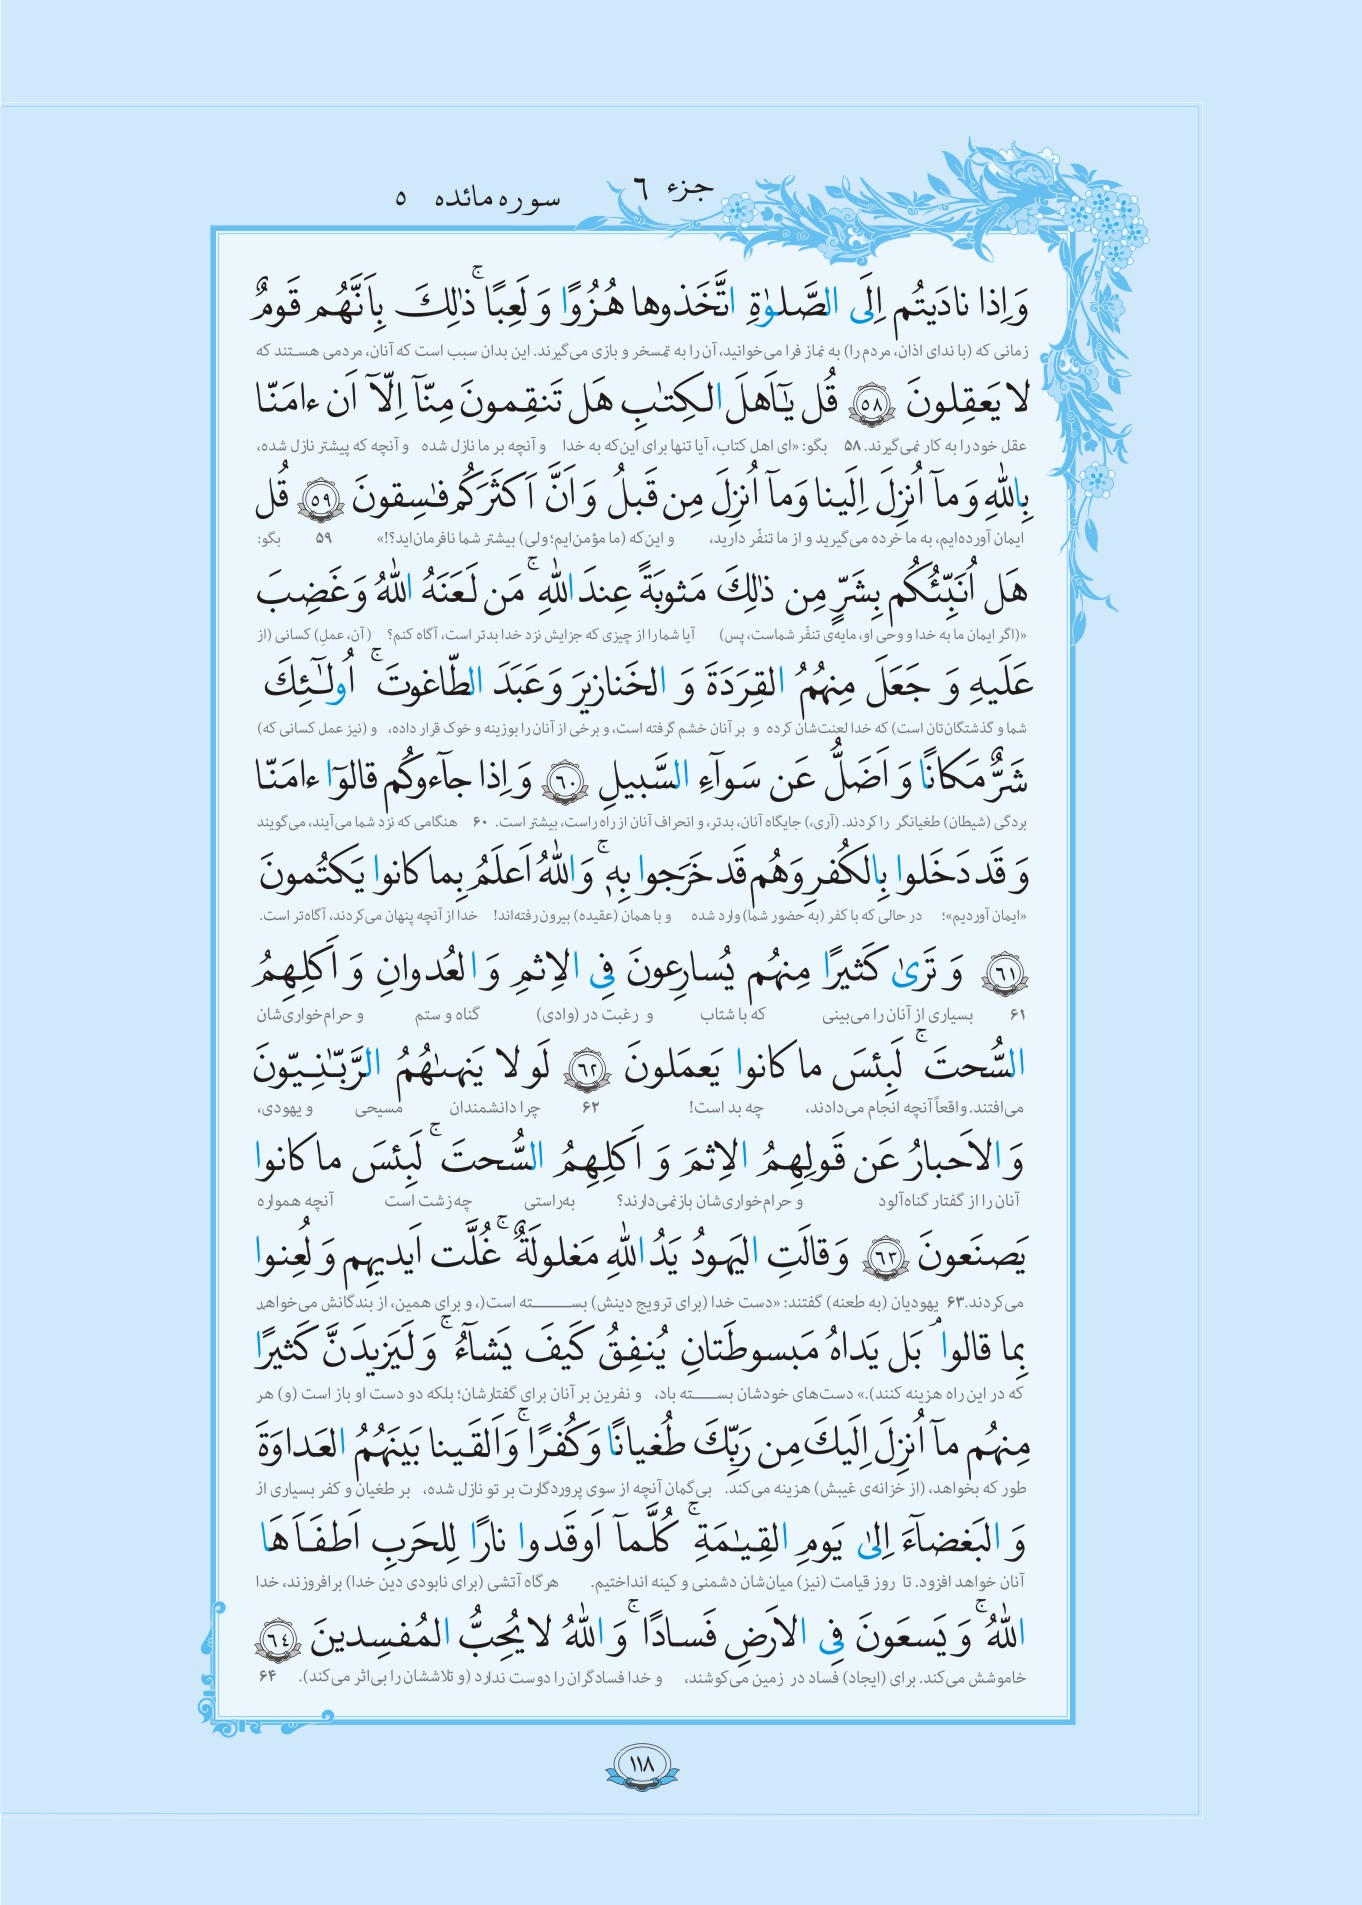 جزء ٦
سوره مائده ٥
وَ اِذا نادَيتُم اِلَى الصَّلوٰةِ اتَّخَذوها هُزُوًا وَ لَعِبًا ۚ ذٰلِكَ بِاَنَّهُم قَومٌ
زمانی که (با ندای اذان، مردم را) به نماز فرا می‌خوانید، آن را به تمسخر و بازی می‌گیرند. این بدان سبب است که آنان، مردمی هستند که
لا يَعقِلونَ ﴿٥٨﴾ قُل يٰٓاَهلَ الكِتٰبِ هَل تَنقِمونَ مِنّآ اِلّآ اَن ءامَنّا
عقل خود را به کار نمی‌گیرند. ۵۸ بگو: «ای اهل کتاب، آیا تنها برای این‌که به خدا و آنچه بر ما نازل شده و آنچه که پیشتر نازل شده،
بِاللهِ وَ مآ اُنزِلَ اِلَينا وَ مآ اُنزِلَ مِن قَبلُ وَ اَنَّ اَكثَرَكُم فٰسِقونَ ﴿٥٩﴾ قُل
ایمان آورده‌ایم، به ما خرده می‌گیرید و از ما تنفّر دارید، و این‌که (ما مؤمن‌ایم؛ ولی) بیشتر شما نافرمان‌اید؟!» ۵۹ بگو:
هَل اُنَبِّئُكُم بِشَرٍّ مِن ذٰلِكَ مَثوبَةً عِندَ اللهِ ۚ مَن لَعَنَهُ اللهُ وَ غَضِبَ
«(اگر ایمان ما به خدا و وحی او، مایه‌ی تنفّر شماست، پس) آیا شما را از چیزی که جزایش نزد خدا بدتر است، آگاه کنم؟ (آن، عمل) کسانی (از
عَلَيهِ وَ جَعَلَ مِنهُمُ القِرَدَةَ وَ الخَنازيرَ وَ عَبَدَ الطّاغوتَ ۚ اُولٰٓئِكَ
شما و گذشتگان‌تان است) که خدا لعنت‌شان کرده و بر آنان خشم گرفته است، و برخی از آنان را بوزینه و خوک قرار داده، و (نیز عمل کسانی که)
شَرٌّ مَكانًا وَ اَضَلُّ عَن سَوآءِ السَّبيلِ ﴿٦٠﴾ وَ اِذا جآءوكُم قالوٓا ءامَنّا
بردگی (شیطان) طغیانگر را کردند. (آری،) جایگاه آنان، بدتر، و انحراف آنان از راه راست، بیشتر است. ۶۰ هنگامی که نزد شما می‌آیند، می‌گویند
وَ قَد دَخَلوا بِالكُفرِ وَ هُم قَد خَرَجوا بِهٖ ۚ وَ اللهُ اَعلَمُ بِما كانوا يَكتُمونَ
«ایمان آوردیم»؛ در حالی که با کفر (به حضور شما) وارد شده و با همان (عقیده) بیرون رفته‌اند! خدا از آنچه پنهان می‌کردند، آگاه‌تر است.
﴿٦١﴾ وَ تَرىٰ كَثيرًا مِنهُم يُسارِعونَ فِى الاِثمِ وَ العُدوانِ وَ اَكلِهِمُ
۶۱ بسیاری از آنان را می‌بینی که با شتاب و رغبت در (وادی) گناه و ستم و حرام‌خواری‌شان
السُّحتَ ۚ لَبِئسَ ما كانوا يَعمَلونَ ﴿٦٢﴾ لَو لا يَنهىٰهُمُ الرَّبّٰنِيّونَ
می‌افتند. واقعاً آنچه انجام می‌دادند، چه بد است! ۶۲ چرا دانشمندان مسیحی و یهودی،
وَ الاَحبارُ عَن قَولِهِمُ الاِثمَ وَ اَكلِهِمُ السُّحتَ ۚ لَبِئسَ ما كانوا
آنان را از گفتار گناه‌آلود و حرام‌خواری‌شان باز نمی‌دارند؟ به‌راستی چه زشت است آنچه همواره
يَصنَعونَ ﴿٦٣﴾ وَ قالَتِ اليَهودُ يَدُ اللهِ مَغلولَةٌ ۚ غُلَّت اَيديهِم وَ لُعِنوا
می‌کردند. ۶۳ یهودیان (به طعنه) گفتند: «دست خدا (برای ترویج دینش) بســته است(، و برای همین، از بندگانش می‌خواهد
بِما قالوا ۘ بَل يَداهُ مَبسوطَتانِ يُنفِقُ كَيفَ يَشآءُ ۚ وَ لَيَزيدَنَّ كَثيرًا
که در این راه هزینه کنند).» دست‌های خودشان بســته باد، و نفرین بر آنان برای گفتارشان؛ بلکه دو دست او باز است (و) هر
مِنهُم مآ اُنزِلَ اِلَيكَ مِن رَبِّكَ طُغيانًا وَ كُفرًا ۚ وَ اَلقَينا بَينَهُمُ العَداوَةَ
طور که بخواهد، (از خزانه‌ی غیبش) هزینه می‌کند. بی‌گمان آنچه از سوی پروردگارت بر تو نازل شده، بر طغیان و کفر بسیاری از
وَ البَغضآءَ اِلىٰ يَومِ القِيٰمَةِ ۚ كُلَّمآ اَوقَدوا نارًا لِلحَربِ اَطفَاَهَا
آنان خواهد افزود. تا روز قیامت (نیز) میان‌شان دشمنی و کینه انداختیم. هرگاه آتشی (برای نابودی دین خدا) برافروزند، خدا
اللهُ ۚ وَ يَسعَونَ فِى الاَرضِ فَسادًا ۚ وَ اللهُ لا يُحِبُّ المُفسِدينَ ﴿٦٤﴾
خاموشش می‌کند. برای (ایجاد) فساد در زمین می‌کوشند، و خدا فسادگران را دوست ندارد (و تلاششان را بی‌اثر می‌کند). ۶۴
١١٨